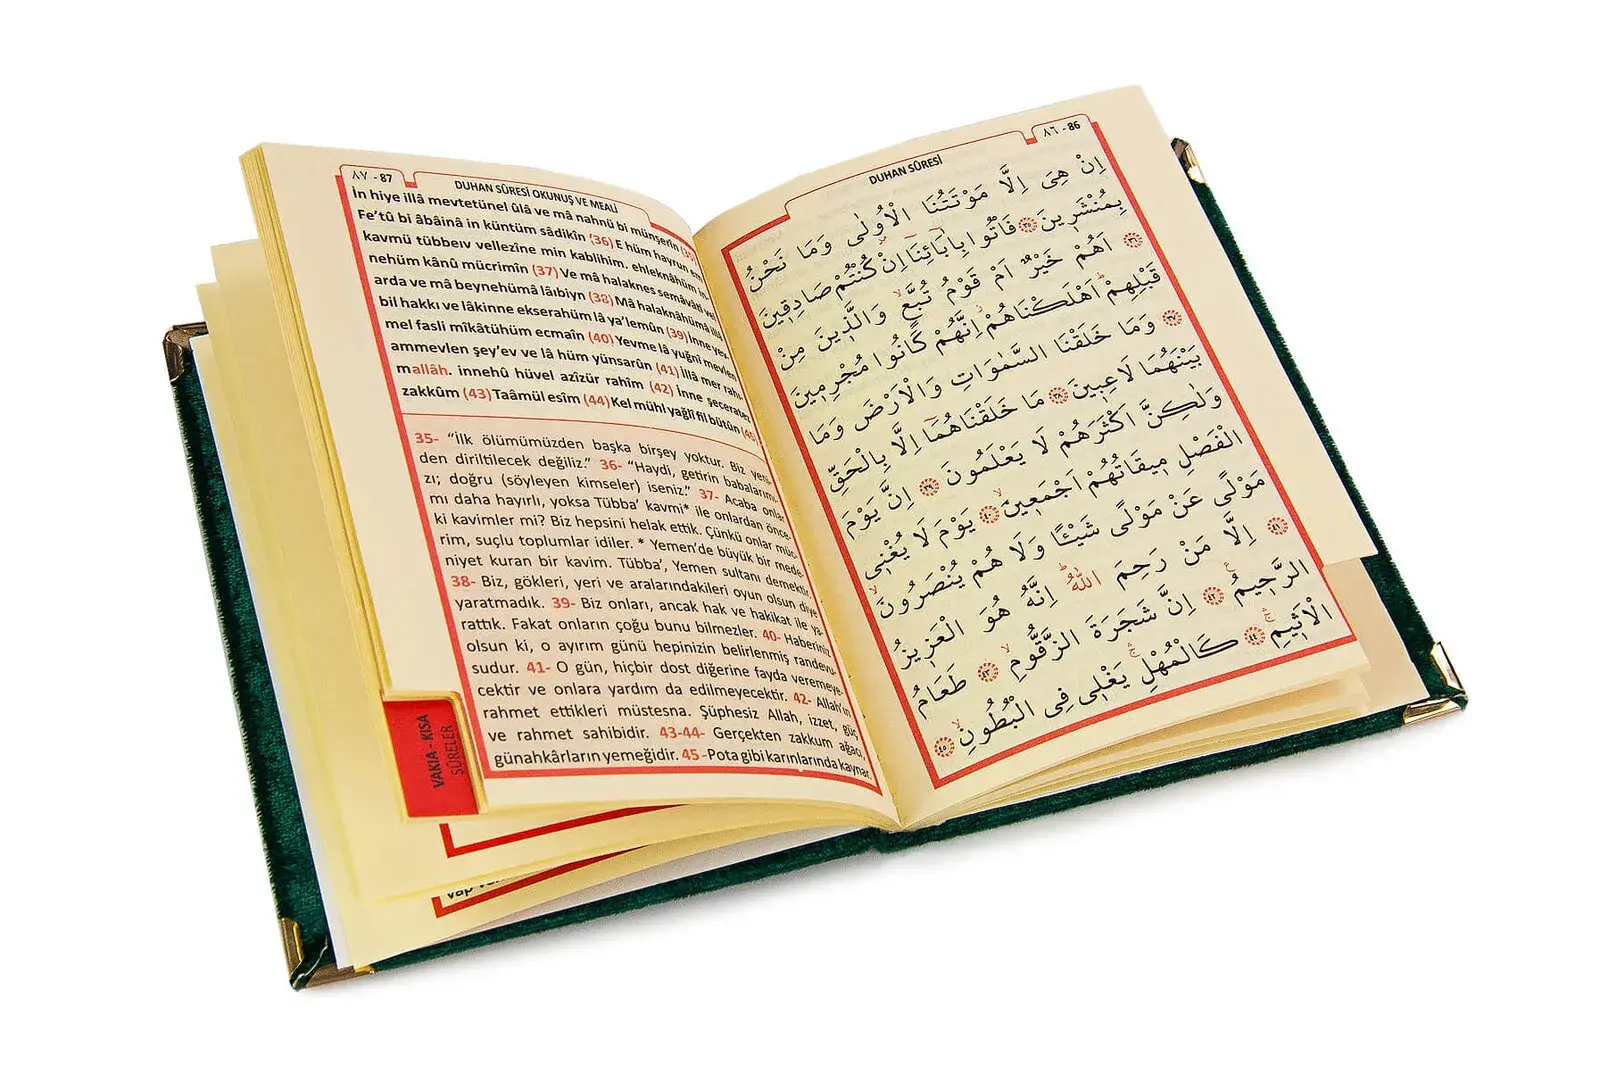 ٨٧ - 87
DUHAN SÛRESİ OKUNUŞ VE MEALİ
İn hiye illâ mevtetünel ûlâ ve mâ nahnü bi münşerîn (35)
Fe'tû bi âbâinâ in küntüm sâdikîn (36) E hüm hayrun em
kavmü tübbeıv vellezîne min kablihim. ehleknâhüm in-
nehüm kânû mücrimîn (37) Ve mâ halaknes semâvâti vel
arda ve mâ beynehümâ lâıbiyn (38) Mâ halaknâhümâ illâ
bil hakkı ve lâkinne ekserahüm lâ ya'lemûn (39) İnne yev-
mel fasli mîkâtühüm ecmaîn (40) Yevme lâ yuğnî mevlen
ammevlen şey'ev ve lâ hüm yünsarûn (41) İllâ mer rahı-
mallâh. innehû hüvel azîzür rahîm (42) İnne şeceratez
zakkûm (43) Taâmül esîm (44) Kel mühl yağlî fil bütûn (45)
35- “İlk ölümümüzden başka birşey yoktur. Biz yeni-
den diriltilecek değiliz.” 36- “Haydi, getirin babalarımı-
zı; doğru (söyleyen kimseler) iseniz.” 37- Acaba onlar
mı daha hayırlı, yoksa Tübba' kavmi* ile onlardan önce-
ki kavimler mi? Biz hepsini helak ettik. Çünkü onlar müc-
rim, suçlu toplumlar idiler. * Yemen'de büyük bir mede-
niyet kuran bir kavim. Tübba', Yemen sultanı demektir.
38- Biz, gökleri, yeri ve aralarındakileri oyun olsun diye
yaratmadık. 39- Biz onları, ancak hak ve hakikat ile ya-
rattık. Fakat onların çoğu bunu bilmezler. 40- Haberiniz
olsun ki, o ayırım günü hepinizin belirlenmiş randevu-
sudur. 41- O gün, hiçbir dost diğerine fayda veremeye-
cektir ve onlara yardım da edilmeyecektir. 42- Allah'ın
rahmet ettikleri müstesna. Şüphesiz Allah, izzet, güç,
ve rahmet sahibidir. 43-44- Gerçekten zakkum ağacı,
günahkârların yemeğidir. 45 -Pota gibi karınlarında kaynar.
VAKIA - KISA
SÛRELER
٨٦ - 86
DUHAN SÛRESİ
اِنْ هِىَ اِلَّا مَوْتَتُنَا الْاُولٰى وَمَا نَحْنُ
بِمُنْشَرٖينَ ٣٥ فَاْتُوا بِاٰبَٓائِنَٓا اِنْ كُنْتُمْ صَادِقٖينَ
٣٦ اَهُمْ خَيْرٌ اَمْ قَوْمُ تُبَّعٍ وَالَّذٖينَ مِنْ
قَبْلِهِمْ اَهْلَكْنَاهُمْ اِنَّهُمْ كَانُوا مُجْرِمٖينَ
٣٧ وَمَا خَلَقْنَا السَّمٰوَاتِ وَالْاَرْضَ وَمَا
بَيْنَهُمَا لَاعِبٖينَ ٣٨ مَا خَلَقْنَاهُمَٓا اِلَّا بِالْحَقِّ
وَلٰكِنَّ اَكْثَرَهُمْ لَا يَعْلَمُونَ ٣٩ اِنَّ يَوْمَ
الْفَصْلِ مٖيقَاتُهُمْ اَجْمَعٖينَ ٤٠ يَوْمَ لَا يُغْنٖى
مَوْلًى عَنْ مَوْلًى شَيْئًا وَلَا هُمْ يُنْصَرُونَ
٤١ اِلَّا مَنْ رَحِمَ اللّٰهُ اِنَّهُ هُوَ الْعَزٖيزُ
الرَّحٖيمُ ٤٢ اِنَّ شَجَرَةَ الزَّقُّومِ ٤٣ طَعَامُ
الْاَثٖيمِ ٤٤ كَالْمُهْلِ يَغْلٖى فِى الْبُطُونِ ٤٥